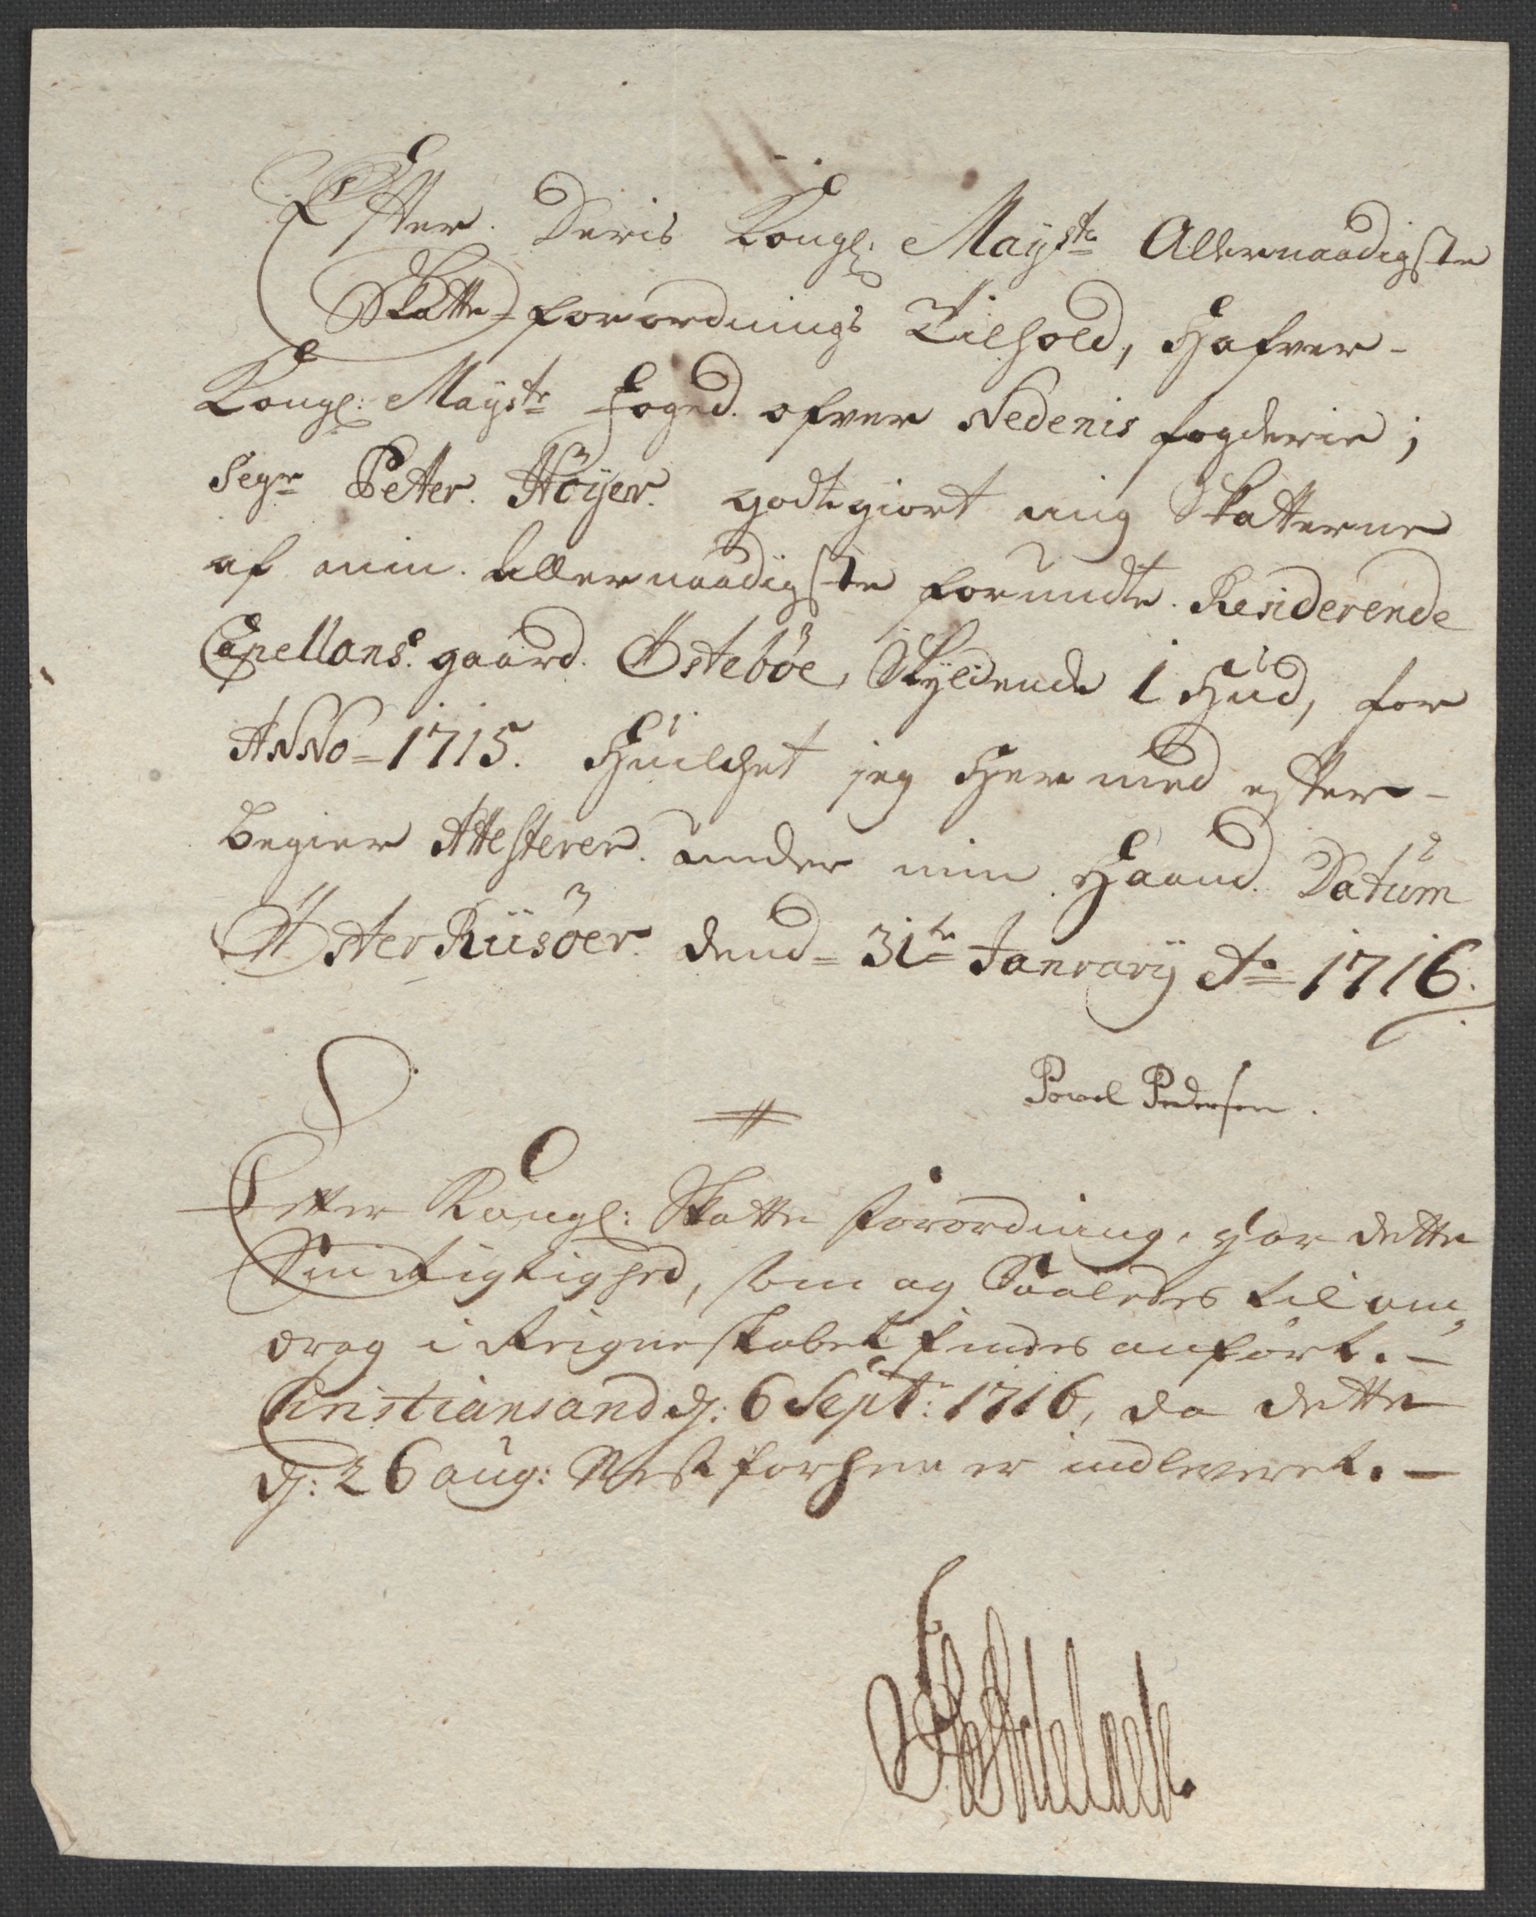 Efter Deris Kongl: Mayst: Allernaadigste
Skatte-forordnings Tilhold, Hafver-
Kongl: Mayst: foged ofver Nedenis fogderie;
Segr Peter Höyer godtgiort mig Skatterne
af min Allernaadigste forundte Residerende
Capellans gaard Östeböe, Skyldende 1 Hud, for
ANNo-1715. Huilchet jeg Hermed efter-
begier Attesterer under min Haand. Datum
Öster Riisöer dend 31te January Ao 1716.
Powel Pedersen.
Efter Kongl: Skatte forordning, har dette
Sin Rigtighed, som og Saaledes til am,
drag i Reigneskabet findes anfört. -
Christiansand d: 6 Sept: 1716, da dette
d: 26 aug: Nest forhen er indleveret. -